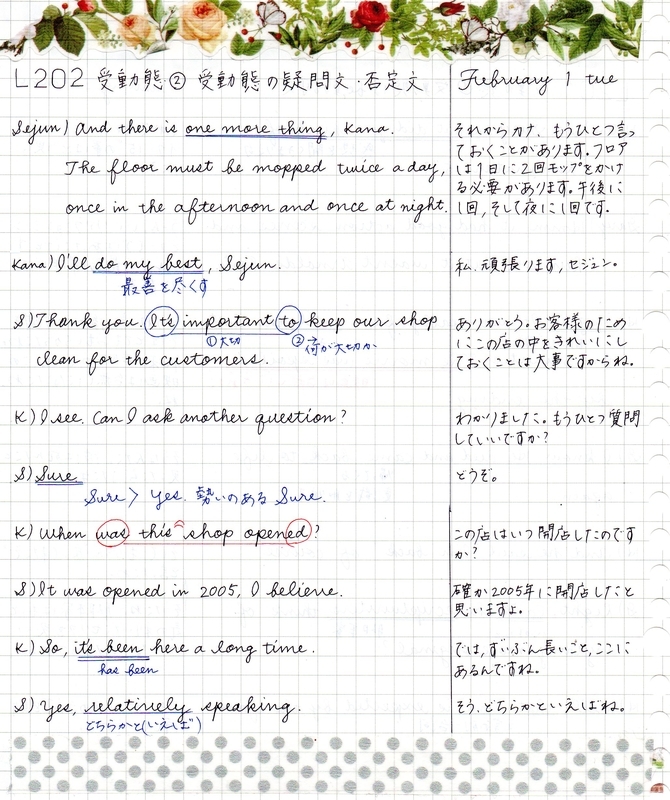 L202 受動態② 受動態の疑問文・否定文 February 1 tue
Sejun) And there is one more thing, Kana.
The floor must be mopped twice a day,
once in the afternoon and once at night.
それからカナ、もうひとつ言っ
ておくことがあります。フロア
は1日に2回モップをかけ
る必要があります。午後に
1回,そして夜に1回です。
Kana) I'll do my best, Sejun.
最善を尽くす
私、頑張ります,セジュン。
S) Thank you. It's important to keep our shop
①大切 ②何が大切か
clean for the customers.
ありがとう。お客様のため
にこの店の中をきれいにし
ておくことは大事ですからね。
K) I see. Can I ask another question?
わかりました。もうひとつ質問
していいですか?
S) Sure.
Sure > Yes. 勢いのある Sure.
どうぞ。
K) When was this shop opened?
この店はいつ開店したのです
か?
S) It was opened in 2005, I believe.
確か2005年に開店したと
思いますよ。
K) So, it's been here a long time.
has been
では,ずいぶん長いこと,ここに
あるんですね。
S) Yes, relatively speaking.
どちらかと(いえば)
そう、どちらかといえばね。